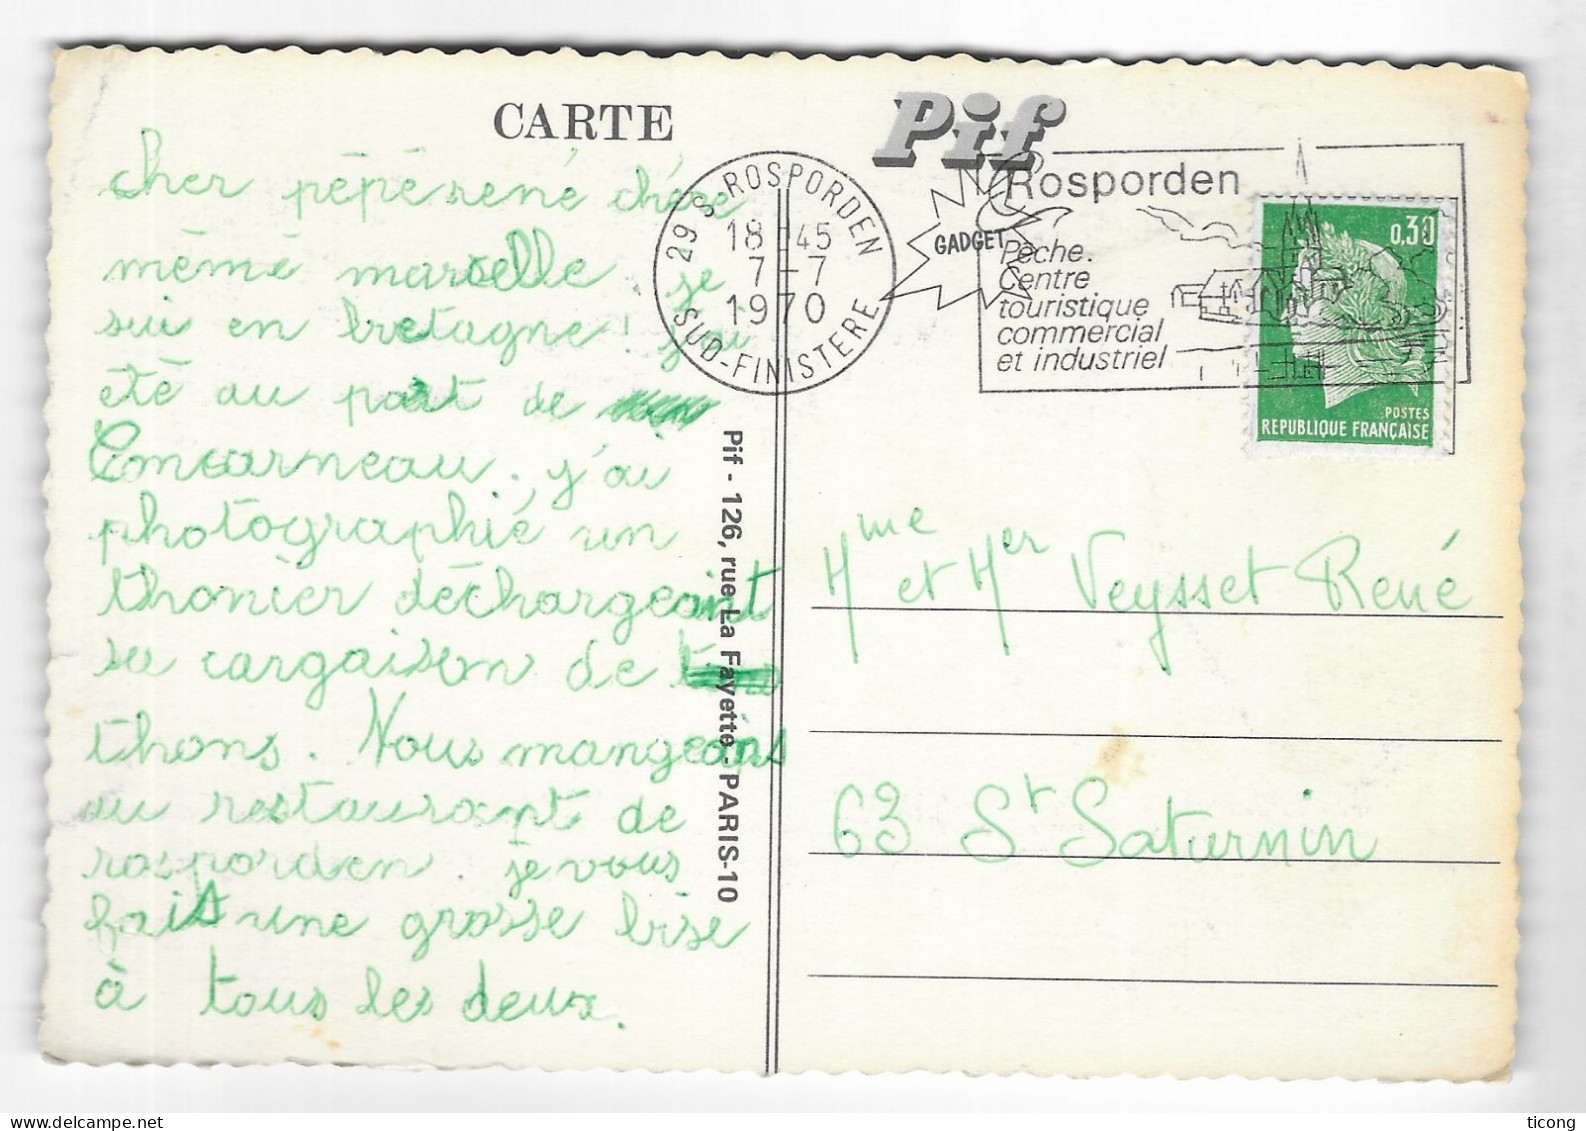 CARTE
Pif
GADGET
29 S ROSPORDEN
18-45
7-7
1970
SUD-FINISTERE
Rosporden
Pêche.
Centre
touristique
commercial
et industriel
0,30
POSTES
REPUBLIQUE FRANÇAISE
cher pépé rené chère
mémé marcelle. je
sui en bretagne! j'ai
été au port de
Concarneau. j'ai
photographié un
thonier déchargeant
sa cargaison de
thons. Nous mangeons
au restaurant de
rosporden. je vous
fais une grosse bise
à tous les deux.
Pif - 126, rue La Fayette - PARIS-10
Mme et Mer Veysset René
63 St Saturnin
ticong
delcampe.net